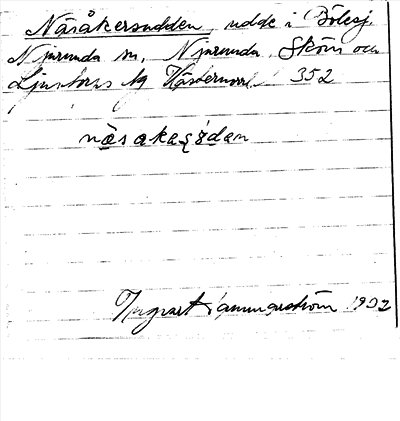 Näsåkersudden, udde i Bölesj.
Njurunda sn, Njurunda, Sköns och
Ljustorps tg Västernorrl. 352
näsakeʂɤ́dən
Ingvart Hammarström 1932